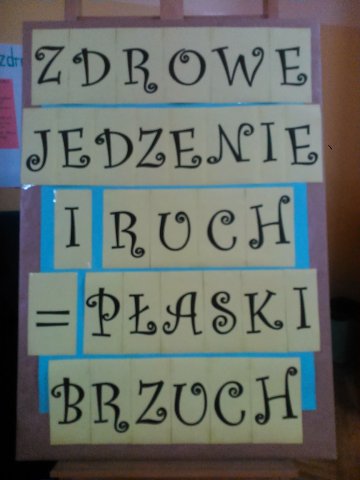 ZDROWE
JEDZENIE
I RUCH
= PŁASKI
BRZUCH